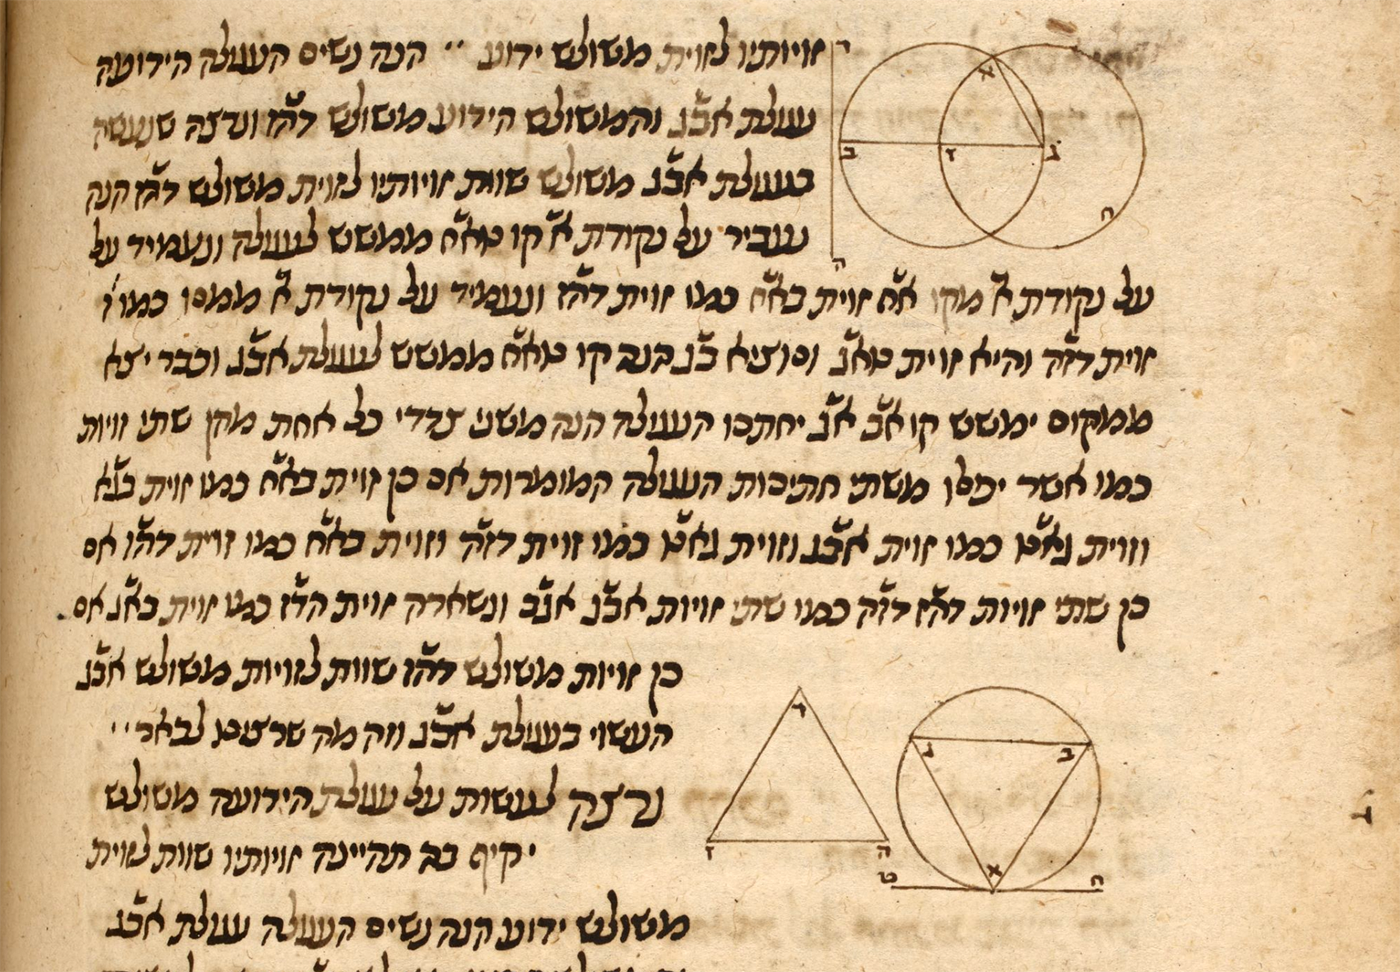 זויותיו לזוית משולש ידוע ׳׳ הנה נשים העגולה הידועה
עגולת אבג והמשולש הידוע משולש דהז ונרצה שנעשה
בעגולת אבג משולש שוות זויותיו לזוית משולש דהז הנה
נעביר על נקודת א קו טאח ממשש לעגולה ונעמיד על
על נקודת א מקו אח זוית באח כמו זוית דהז ונעמיד על נקודת א ממנו כמו
זוית דזה והיא זוית טאג ונוציא בג הנה קו טאח ממשש לעגולת אבג וכבר יצא
ממקום ימשש קו אב אג יחתכו העגולה הנה משני צדדי כל אחת מהן שתי זויות
כמו אשר יפלו משתי חתיכות העגולה המומרות אם כן זוית באח כמו זוית בגא
וזוית גאט כמו זוית אבג וזוית גאט כמו זוית דזה וזוית באח כמו זוית דהז אם
כן שתי זויות דהז דזה כמו שתי זויות אבג אגב ונשארה זוית הדז כמו זוית באג אם
כן זויות משולש דהז שוות לזויות משולש אבג
העשוי בעגולת אבג וזה מה שרצינו לבאר ׳׳
נרצה לעשות על עגולת הידועה משולש
יקיף בה תהיינה זויותיו שוות לזוית
משולש ידוע הנה נשים העגולה עגולת אבג
א
ב
ז
ג
ה
ד
ז
ה
ג
ב
א
ט
ח